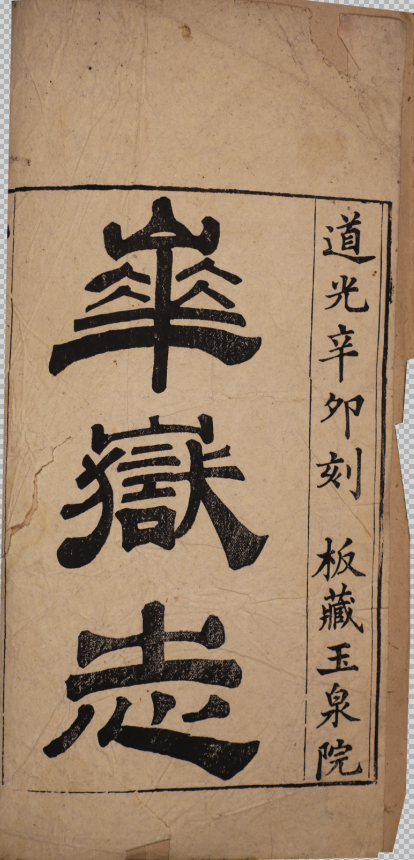 道光辛卯刻　板藏玉泉院
華嶽志